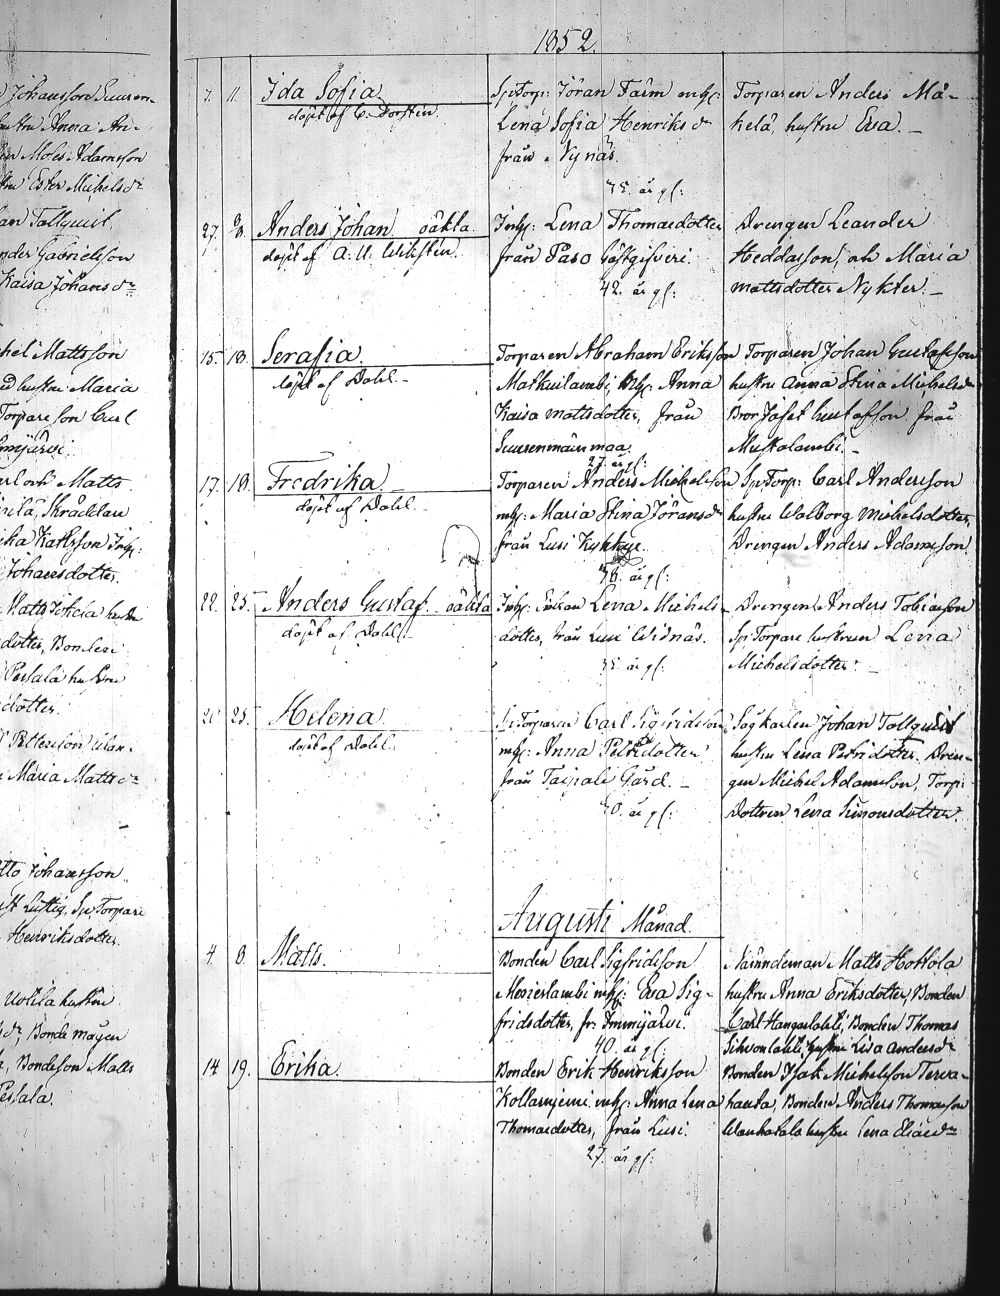 Johansson Suuren-
hustru Anna An-
Moses Adamsson
Ester Michelsdr
Tallquist,
Gabrielsson
Kaisa Johansdr
Mattsson
hustru Maria
Torpare son Carl
Immjärvi.
och Matts
Skräddare
Kattsson Inh:
Johansdotter.
dotter, Bonden
Pessala hustru
dotter.
Pettersson
Maria Mattsdr
Johansson
Luttig, Sp. Torpare
Henriksdotter.
Uotila hustru
Bonde mågen
Bondeson Matts
Pessala.
1852.
7. 11. Ida Sofia
döpt af C. Dorstén.
Sp Torp: Jöran Farm mhf:
Lena Sofia Henriksdr
från Nynäs.
35. år gl:
Torparen Anders Mä-
kelä, hustru Eva. -
27. Anders Johan oäkta
döpt af A. U. Wikstén.
Inhf: Lena Thomasdotter
från Paso Gästgifveri.
42. år gl:
Drengen Leander
Heddasson, och Maria
Mattsdotter Nykter. -
15. 18. Serafia.
döpt af Dahl. -
Torparen Abraham Eriksson
Matkuslambi, mhf: Anna
Kaisa Mattsdotter, från
Suurenmäinmaa.
27 år gl:
Torparen Johan Gustafsson
hustru Anna Stina Michelsdr
Bror Jafet Gustafsson från
Mustalambi. -
17. 18. Fredrika. -
döpt af Dahl. -
Torparen Anders Michelsson
mhf: Maria Stina Jöransdr
från Lusi Kykkye.
36. år gl:
Sp Torp: Carl Andersson
hustru Walborg Michelsdotter,
Drengen Anders Adamsson.
22. 25. Anders Gustaf. oäkta
döpt af Dahl. -
Inhf: Enkan Lena Michels-
dotter, från Lusi Widnäs.
35 år gl:
Drengen Anders Tobiasson
Sp Torpare hustrun Lena
Michelsdotter. -
20 25. Helena
döpt af Dahl.
Sp Torparen Carl Sigfridsson
mhf: Anna Petridotter
från Taipale Gård. -
30. år gl:
Sågkarlen Johan Tallquist
hustru Lena Petridotter. Dren-
gen Michel Adamsson, Torp:
Dottren Lena Simonsdotter.
Augusti Månad.
4. 8. Matts.
Bonden Carl Sigfridsson
mhf: Eva Sig-
fridsdotter, fr: Immijärvi.
40. år gl:
Nämndeman Matts Hottola
hustru Anna Eriksdotter, Bonden
Carl Hangaslahti, Bonden Thomas
Sihvonlahti, hustru Lisa Andersdr
14 19. Erika.
Bonden Erik Henriksson
Kollanjemi mhf: Anna Lena
Thomasdotter, från Lusi.
27. år gl:
Bonden Isak Michelsson Terva-
hauta, Bonden Anders Thomasson
Wanhatalo hustru Lena Eliasdr